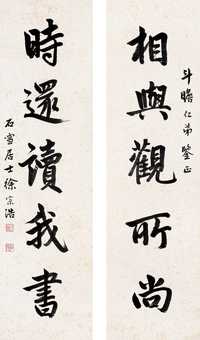 斗瞻仁弟 鉴正
相與觀所尚
時還讀我書
石雪居士徐宗浩